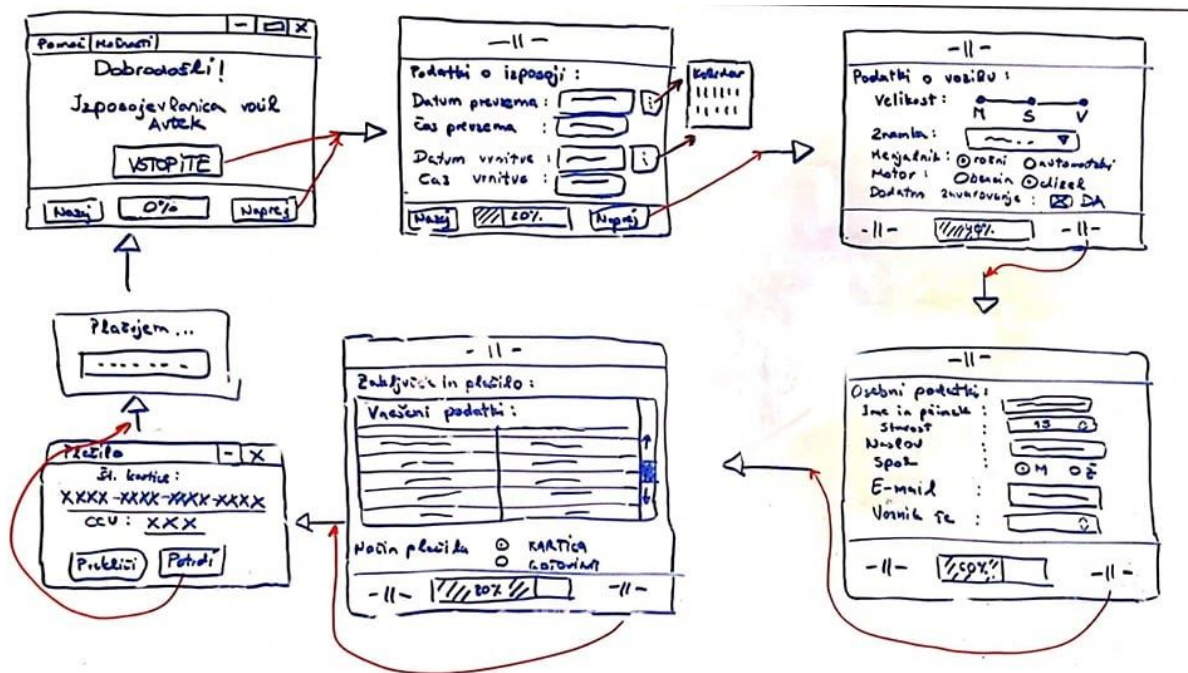 - X
Pomoč Možnosti
Dobrodošli!
Izposojevalnica vozil
Avtek
VSTOPITE
Nazaj 0% Naprej
-||-
Podatki o izposoji:
Datum prevzema:
Čas prevzema:
Datum vrnitve:
Čas vrnitve:
Nazaj 20% Naprej
Koledar
-||-
Podatki o vozilu:
Velikost:
M S V
Znamka:
Menjalnik: ročni avtomatski
Motor: bencin dizel
Dodatno zavarovanje: DA
-||- 40% -||-
-||-
Osebni podatki:
Ime in priimek:
Starost: 18
Naslov:
Spol: M Ž
E-mail:
Voznik že
-||- 60% -||-
-||-
Zaključek in plačilo:
Vnešeni podatki:
Način plačila KARTICA
GOTOVINA
-||- 80% -||-
Plačilo - X
Št. kartice:
XXXX-XXXX-XXXX-XXXX
CCV: XXX
Prekliči Potrdi
Plačujem...